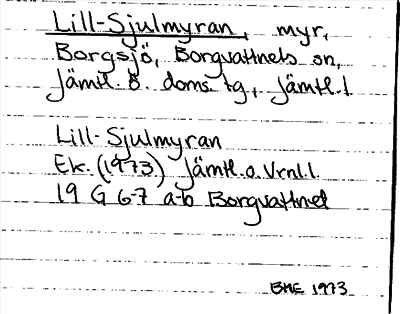 Lill-Sjulmyran, myr,
Borgsjö, Borgvattnets sn,
Jämtl. ö. doms. tg., Jämtl. l
Lill-Sjulmyran
Ek. (1973) Jämtl. o. Vrnl. l.
19 G 6-7 a-b Borgvattnet
BHE 1973